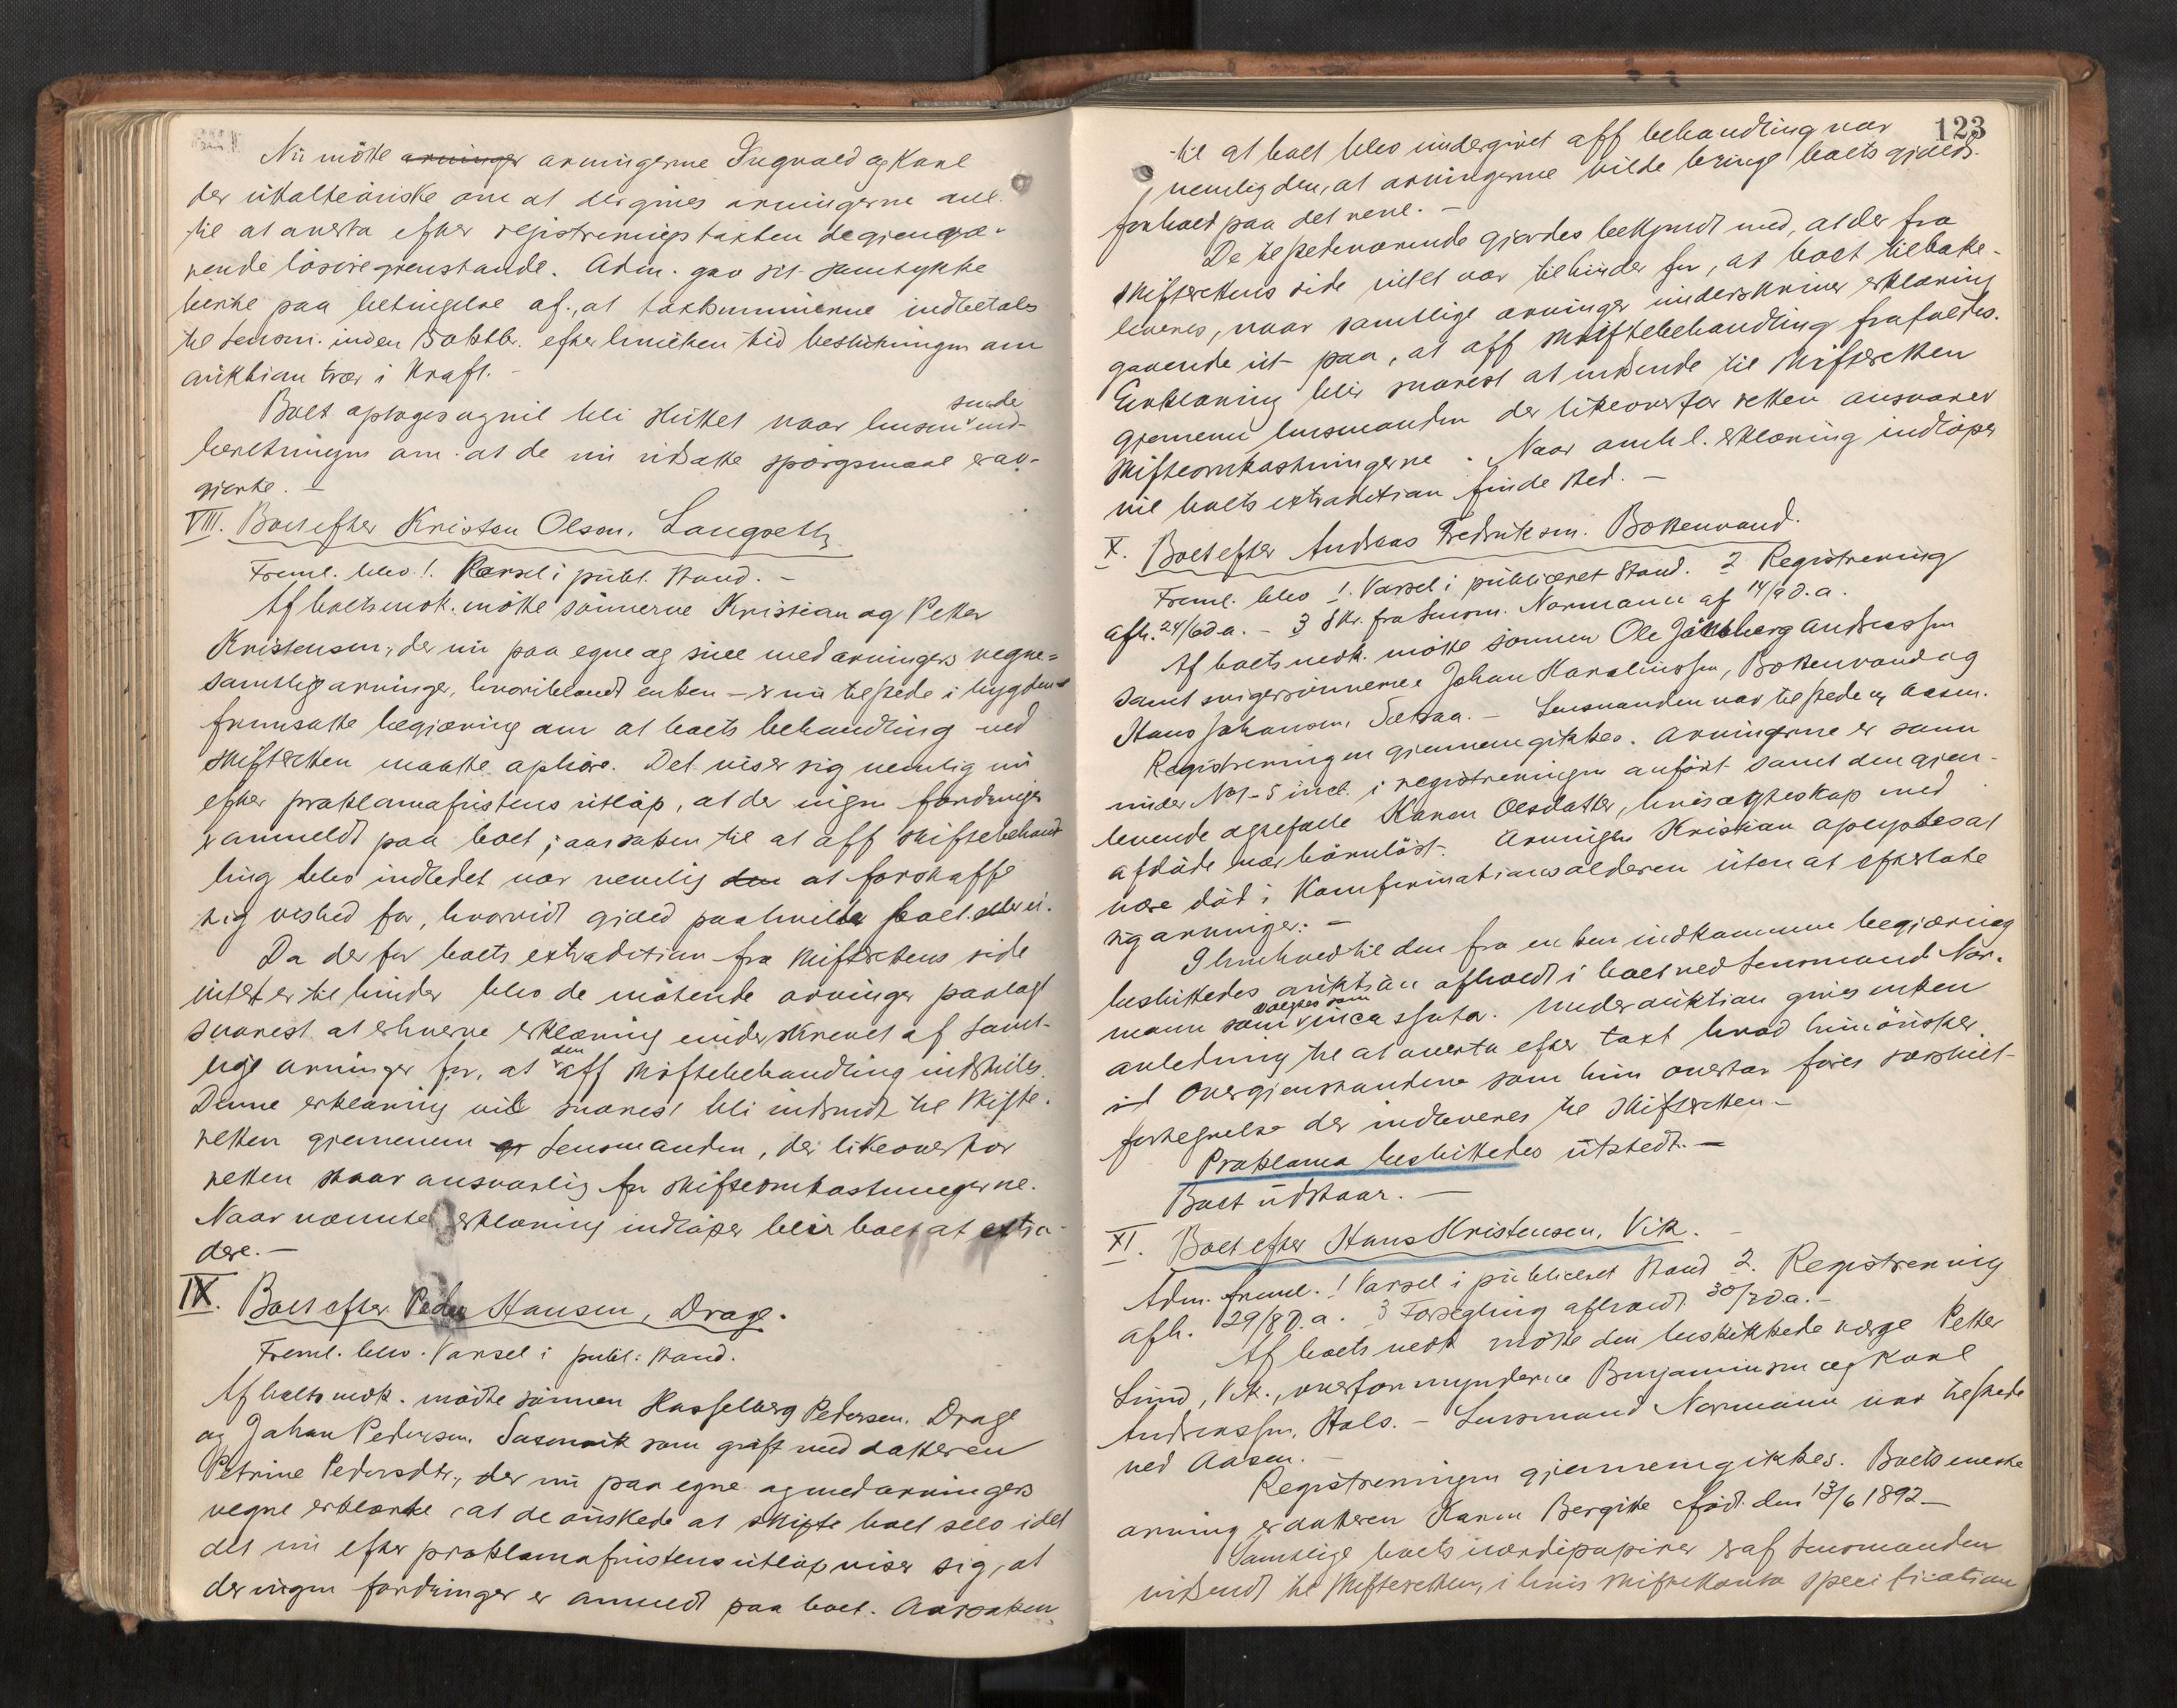 Nu mötte arvinger arvingerne Ingvald og Karl
der uttalte önske om at der gives arvingerne anl.
til at overta efter registreringstaxten de gjenvæ-
rende lösöregjenstande. Adm. gav sit samtykke
herke paa betingelse af, at taxtsummerne indbetales
til lensm. inden 15 oktbr. efter hvilken tid beslutningen om
auktion træ i Kraft. -
Boet optoges og vil bli sluttet naar lensm. sender ind-
beretningen om at de nu udsatte spörgsmaal er av-
gjorte. -
VIII. Boet efter Kristen Olsen, Langseth
Freml. blev 1. Varsel i publ. Stand. -
Af boets vedk. mötte sönnerne Kristian og Petter
Kristensen, der nu paa egne og sine medarvingers vegne =
samtlige arvinger, hvoriblandt enken - er nu tilstede i bygden =
fremsatte begjæring om at boets behandling ved
skifteretten maatte ophöre. Det viser sig nemlig nu
efter proklamafristens utlöp, at der ingen fordringer
er anmeldt paa boet; aarsaken til at off skiftebehand
ling blev indledet var nemlig den at forskaffe
sig vished for, hvorvidt gjæld paahvilte boet eller ei.
Da der for boets extradition fra skifterettens side
intet er til hinder blev de mötende arvinger paalagt
snarest at erhverve erklæring underskrevet af samt-
lige arvinger for, at den off skiftebehandling indstilles.
Denne erklæring vil snarest bli indsendt til Skifte-
retten gjennem gj Lensmanden, der likeoverfor
retten staar ansvarlig for skifteomkostningerne.
Naar nævnte erklæring indlöper blir boet at extra-
dere. -
IX. Boet efter Peder Hansen, Drage.
Freml. blev. Varsel i publ. stand.
Af boets vedk. mödte sönnen Hasselberg Pedersen, Drage
og Johan Pedersen, som gift med datteren
Petrine Pedersdtr., der nu paa egne og medarvingers
vegne erklærte at de önskede at skifte boet selv idet
det nu efter proklamafristens utlöp viser sig, at
der ingen fordringer er anmeldt paa boet. Aarsaken
123
til at boet blev undergivet off behandling var
nemlig den, at arvingerne vilde bringe boets gjælds-
forhold paa det rene. -
De tilstedeværende gjordes bekjendt med, at der fra
skifterettens side intet var til hinder for, at boet tilbake-
leveres, naar samtlige arvinger underskriver erklæring
gaaende ut paa, at off skiftebehandling frafaldes.
Erklæring blir snarest at indsende til Skifteretten
gjennem lensmanden der likeoverfor retten ansvarer
skifteomkostningerne. Naar omh. erklæring indlöper
vil boets extradition finde sted. -
X. Boet efter Andreas Fredriksen. Bottenvand.
Freml. blev 1. Varsel i publiceret Stand. 2 Registrering
afh. 24/6 d.a. - 3 Skr. fra Lensm. Normann af 14/9 d.a.
Af boets vedk. mötte sönnen Ole Jakobberg Andreassen
samt svigersönnerne Johan Karoliussen, Bottenvand og
Hans Johansen, Sætraa. - Lensmanden var tilstede v/ Aasen.
Registreringen gjennemgikkes. Arvingerne er som
under No 1-5 incl. i registreringen anfört samt den gjen-
levende ægtefælle Karen Olesdatter, hvis ægteskap med
afdöde var barnlöst. Arvingen Kristian oplystes at
være död i Konfirmationsalderen uten at efterlate
sig arvinger. -
I henhold til den fra enken indkomne begjæring
besluttedes auktion afholdt i boet ved Lensmand Nor-
mann som valgtes som incassator. Under auktion gives enken
anledning til at overta efter taxt hvad hun önsker
Over gjenstandene som hun overtar föres særskilt
fortegnelse der indleveres til Skifteretten -
Proklama besluttedes utstedt. -
Boet udstaar. -
XI. Boet efter Hans Kristensen, Vik. -
Adm. freml. 1 Varsel i publiceret Stand 2. Registrering
afh. 29/8 d.a. 3 Forsegling afholdt 30/7 d.a. -
Af boets vedk mötte den beskikkede værge Petter
Lund, Vik., overformynderne Benjaminsen og Karl
Andreassen, Hals. - Lensmand Normann var tilstede
ved Aasen. -
Registreringen gjennemgikkes. Boets eneste
arving er datteren Karen Bergitte född den 13/6 1892 -
Samtlige boets værdipapirer er af Lensmanden
indsendt til Skifteretten, i hvis skiftekonto specification